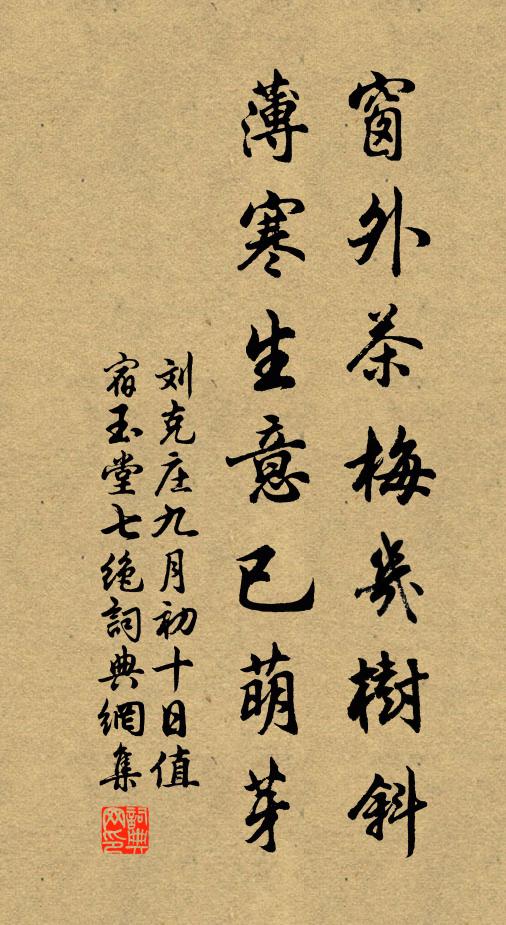 窗外茶梅幾樹斜
薄寒生意已萌芽
刘克庄九月初十日值
宿玉堂七绝詞典網集
詞典
网印